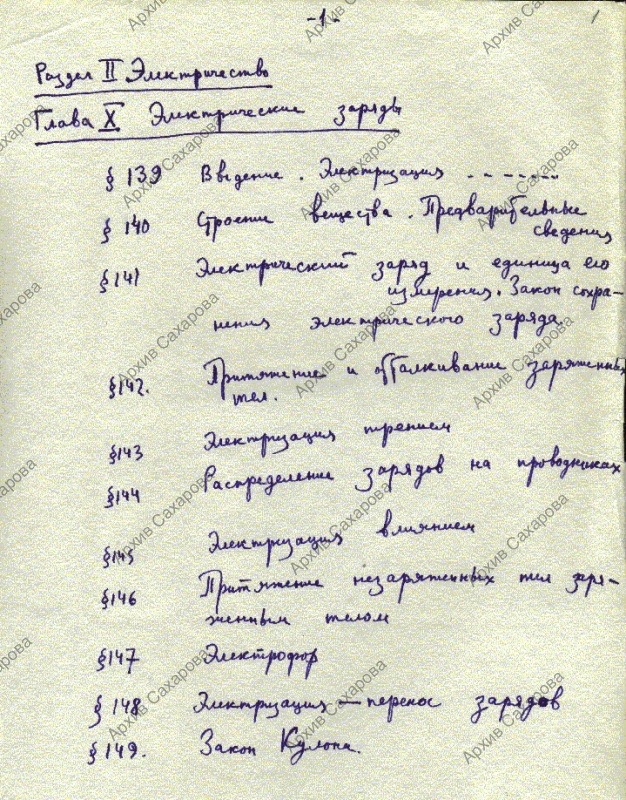 -1-
1
Раздел II Электричество
Глава X Электрические заряды
§ 139 Введение. Электризация - - - - - - -
§ 140 Строение вещества. Предварительные
сведения
§141 Электрический заряд и единица его
измерения. Закон сохра-
нения электрического заряда.
§142. Притяжение и отталкивание заряженных
тел.
§143 Электризация трением
§144 Распределение зарядов на проводниках
§145 Электризация влиянием
§146 Притяжение незаряженных тел заря-
женным телом
§147 Электрофор
§ 148 Электризация — перенос зарядов
§ 149. Закон Кулона.
Архив Сахарова